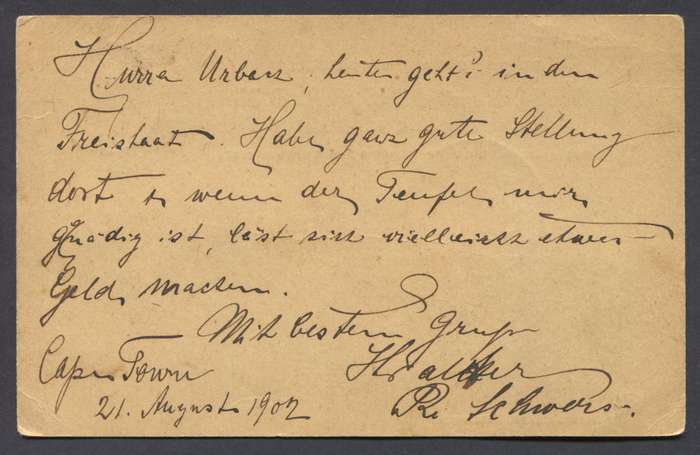 Hurra Urban, heute geht's in den
Freistaat. Habe ganz gute Stellung
dort u wenn der Teufel mir
gnädig ist, läst sich vielleicht etwas
Geld machen.
Mit bestem Gruß
Cape Town
21. August 1902